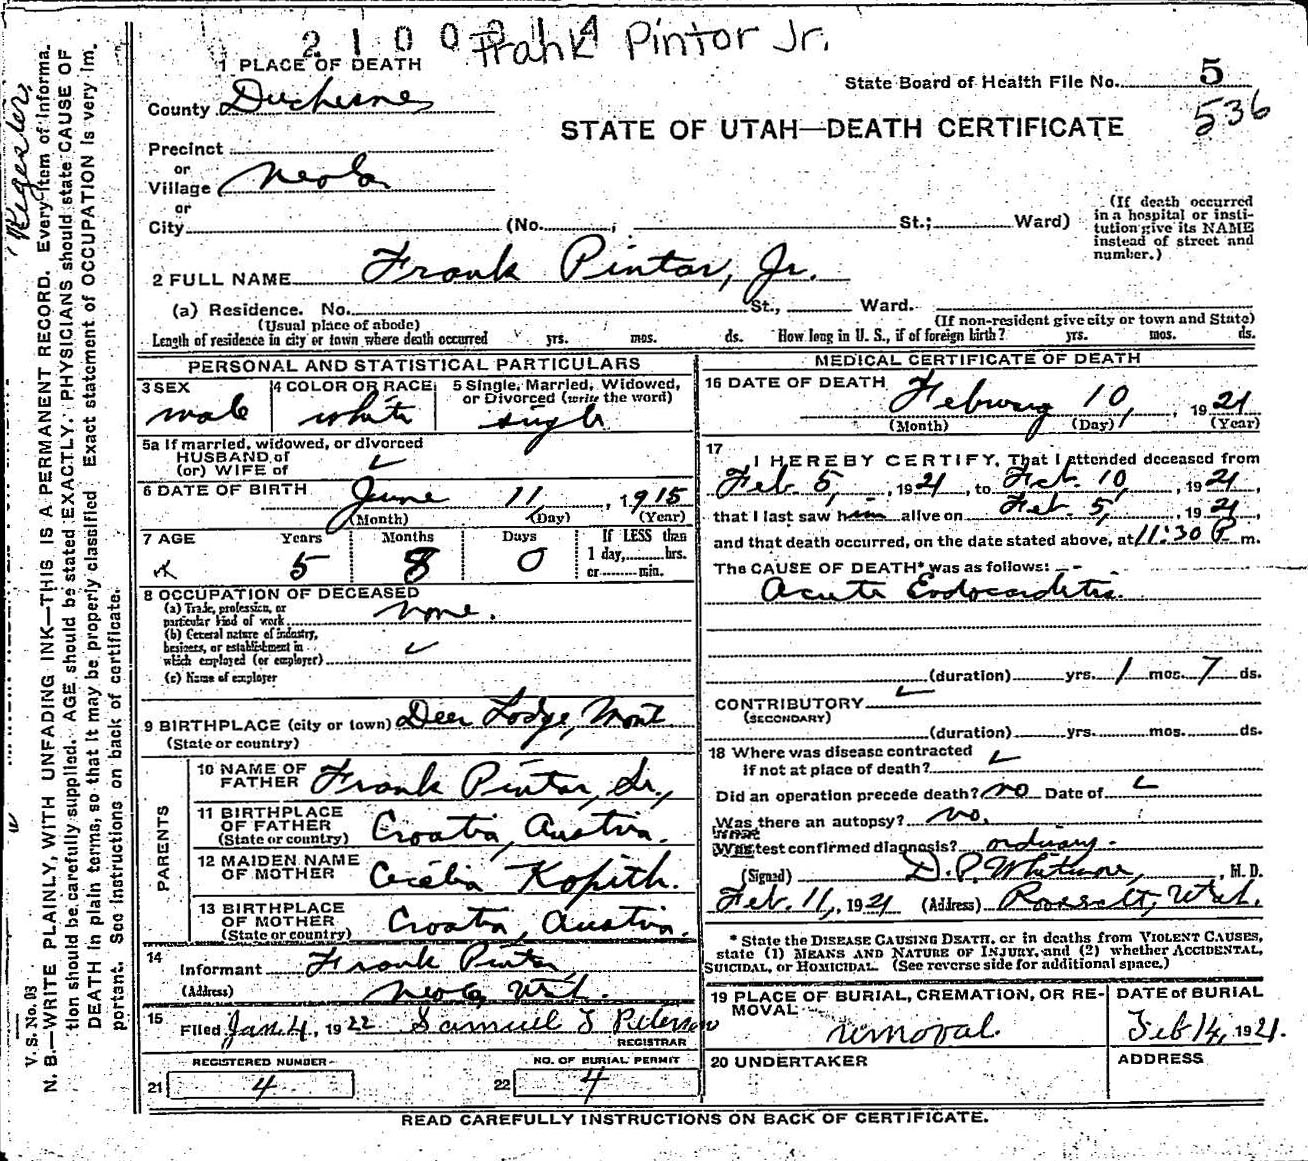 2 1 0 0 2 1 4
Frank Pintor Jr.
1 PLACE OF DEATH
State Board of Health File No. 5
536
County Duchesne
STATE OF UTAH—DEATH CERTIFICATE
Precinct
or
Village Neola
or
City (No. ; St.; Ward)
(If death occurred in a hospital or insti-
tution give its NAME
instead of street and
number.)
2 FULL NAME Frank Pintar, Jr.
(a) Residence. No. St., Ward.
(Usual place of abode) (If non-resident give city or town and State)
Length of residence in city or town where death occurred yrs. mos. ds. How long in U. S., if of foreign birth? yrs. mos. ds.
PERSONAL AND STATISTICAL PARTICULARS
3 SEX male
4 COLOR OR RACE white
5 Single, Married, Widowed,
or Divorced (write the word)
single
5a If married, widowed, or divorced
HUSBAND of
(or) WIFE of
6 DATE OF BIRTH June 11, 1915
(Month) (Day) (Year)
7 AGE Years Months Days If LESS than
5 8 0 1 day, hrs.
or min.
8 OCCUPATION OF DECEASED
(a) Trade, profession, or
particular kind of work none.
(b) General nature of industry,
business, or establishment in
which employed (or employer)
(c) Name of employer
9 BIRTHPLACE (city or town) Deer Lodge, Mont
(State or country)
PARENTS
10 NAME OF
FATHER Frank Pintar, Sr.,
11 BIRTHPLACE
OF FATHER Croatia, Austria.
(State or country)
12 MAIDEN NAME
OF MOTHER Cecelia Kopith.
13 BIRTHPLACE
OF MOTHER Croatia, Austria.
(State or country)
14
Informant Frank Pintar,
(Address) Neola, Utah.
15 Filed Jan. 4, 1922 Samuel T Peterson
REGISTRAR
REGISTERED NUMBER
21 4
NO. OF BURIAL PERMIT
22 4
MEDICAL CERTIFICATE OF DEATH
16 DATE OF DEATH February 10, 1921
(Month) (Day) (Year)
17
I HEREBY CERTIFY, That I attended deceased from
Feb. 5, 1921, to Feb. 10, 1921,
that I last saw him alive on Feb. 5, 1921,
and that death occurred, on the date stated above, at 11:30 P m.
The CAUSE OF DEATH* was as follows:
Acute Endocarditis.
(duration) yrs. 1 mos. 7 ds.
CONTRIBUTORY
(SECONDARY)
(duration) yrs. mos. ds.
18 Where was disease contracted
if not at place of death?
Did an operation precede death? no Date of
Was there an autopsy? no.
What test confirmed diagnosis? ordinary.
(Signed) D. P. Whitmore, M. D.
Feb. 11, 1921 (Address) Roosevelt, Utah.
* State the DISEASE CAUSING DEATH, or in deaths from VIOLENT CAUSES,
state (1) MEANS AND NATURE OF INJURY, and (2) whether ACCIDENTAL,
SUICIDAL, or HOMICIDAL. (See reverse side for additional space.)
19 PLACE OF BURIAL, CREMATION, OR RE-
MOVAL
removal.
DATE of BURIAL
Feb 14, 1921.
20 UNDERTAKER
ADDRESS
READ CAREFULLY INSTRUCTIONS ON BACK OF CERTIFICATE.
V. S. No. 93
N. B.—WRITE PLAINLY, WITH UNFADING INK—THIS IS A PERMANENT RECORD. Every item of informa-
tion should be carefully supplied. AGE should be stated EXACTLY. PHYSICIANS should state CAUSE OF
DEATH in plain terms, so that it may be properly classified. Exact statement of OCCUPATION is very im-
portant. See instructions on back of certificate.